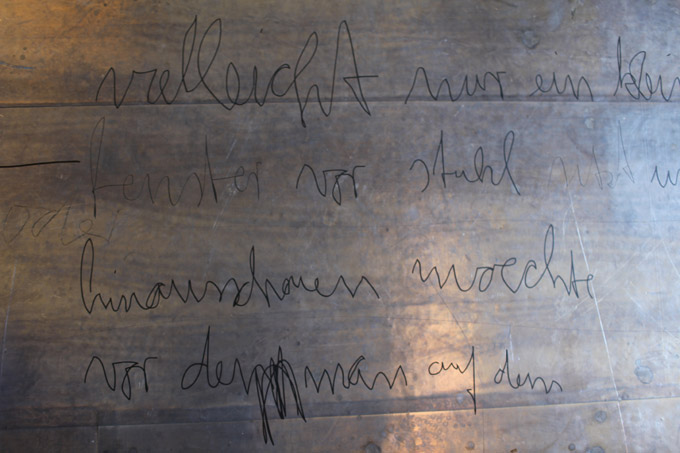 vielleicht nur ein klein
fenster vor stuhl sitzt u
hinauschauen moechte
vor dem man auf dem